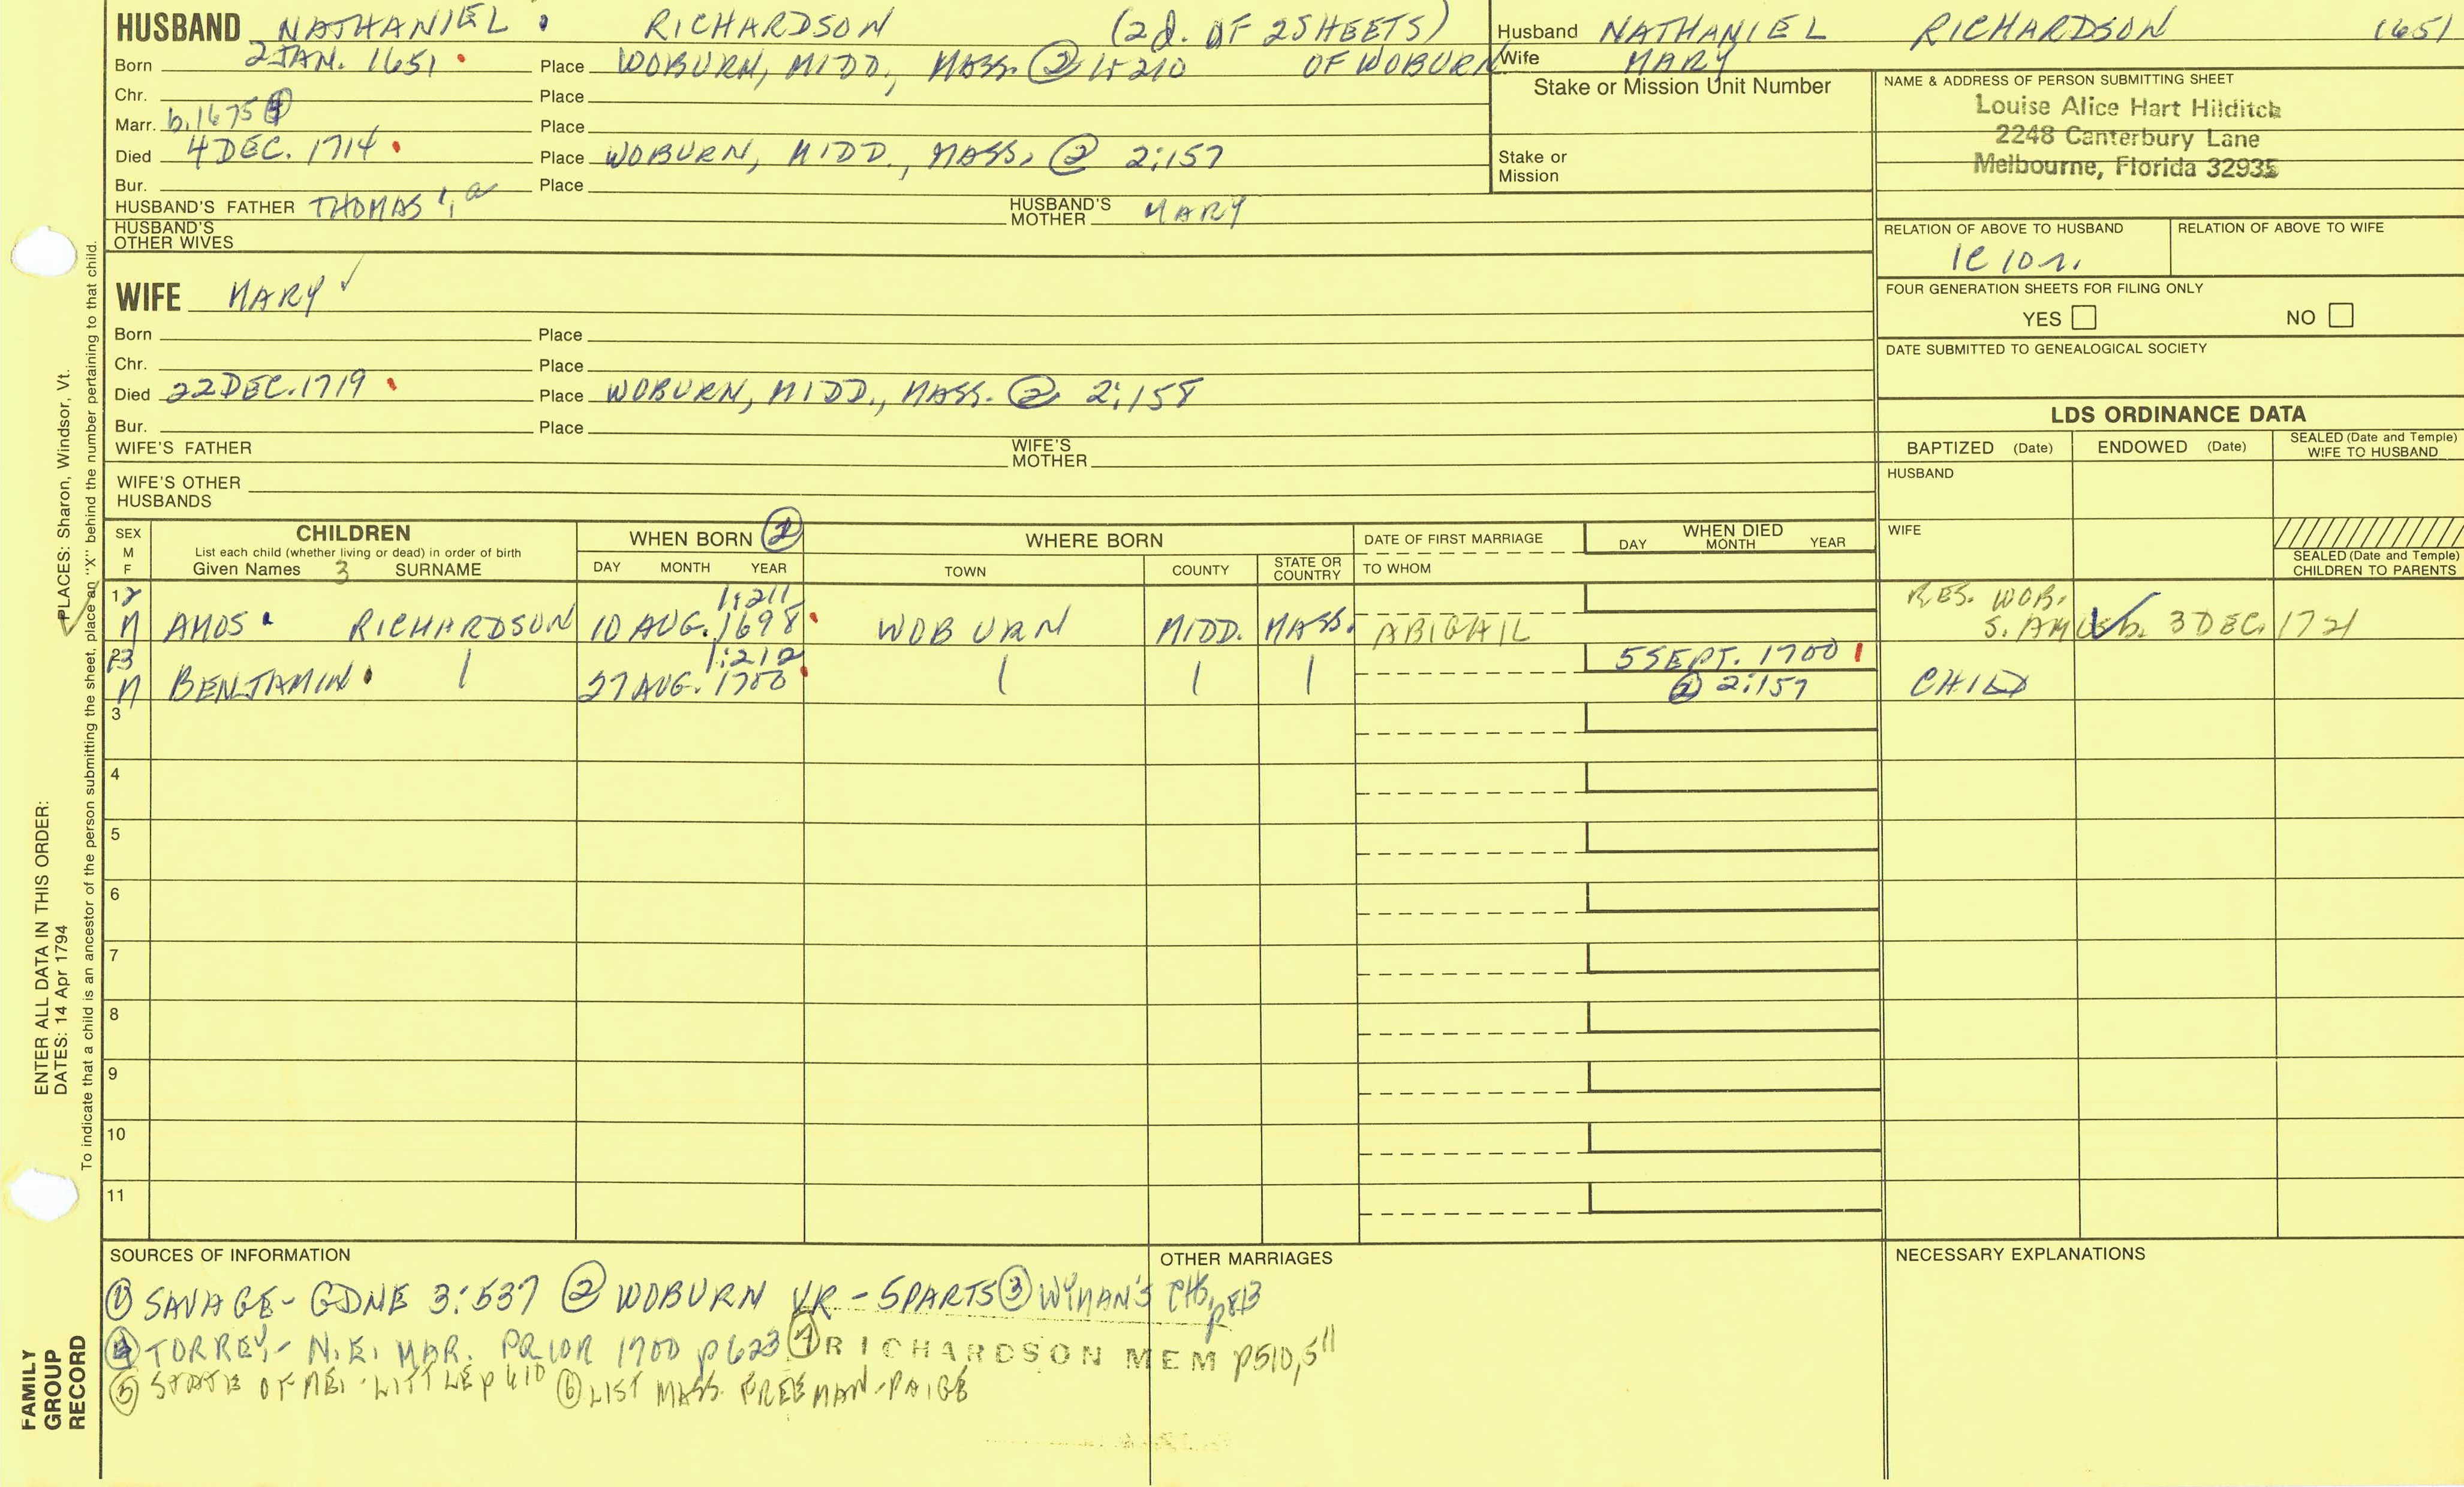 HUSBAND NATHANIEL RICHARDSON (2d. OF 2 SHEETS)
Born 2 JAN. 1651 Place WOBURN, MIDD., MASS. ② 1:210 OF WOBURN
Chr. Place
Marr. b. 1675 ④ Place
Died 4 DEC. 1714 Place WOBURN, MIDD., MASS. ② 2:157
Bur. Place
HUSBAND'S FATHER THOMAS HUSBAND'S MOTHER MARY
HUSBAND'S OTHER WIVES
WIFE MARY ✓
Born Place
Chr. Place
Died 22 DEC. 1719 Place WOBURN, MIDD., MASS. ② 2:158
Bur. Place
WIFE'S FATHER WIFE'S MOTHER
WIFE'S OTHER HUSBANDS
Husband NATHANIEL RICHARDSON 1651
Wife MARY
Stake or Mission Unit Number
Stake or Mission
NAME & ADDRESS OF PERSON SUBMITTING SHEET
Louise Alice Hart Hilditch
2248 Canterbury Lane
Melbourne, Florida 32935
RELATION OF ABOVE TO HUSBAND RELATION OF ABOVE TO WIFE
1C 10 r.
FOUR GENERATION SHEETS FOR FILING ONLY
YES NO
DATE SUBMITTED TO GENEALOGICAL SOCIETY
LDS ORDINANCE DATA
BAPTIZED (Date) ENDOWED (Date) SEALED (Date and Temple) WIFE TO HUSBAND
HUSBAND
WIFE
SEALED (Date and Temple) CHILDREN TO PARENTS
SEX M F
CHILDREN
List each child (whether living or dead) in order of birth
Given Names 3 SURNAME
WHEN BORN ②
DAY MONTH YEAR
WHERE BORN
TOWN COUNTY STATE OR COUNTRY
DATE OF FIRST MARRIAGE
TO WHOM
WHEN DIED
DAY MONTH YEAR
1 1:211 RES. WOB.
M AMOS RICHARDSON 10 AUG. 1698 WOBURN MIDD. MASS. ABIGAIL S. AMOS b. 3 DEC. 1721
2 1:212 5 SEPT. 1700
M BENJAMIN 27 AUG. 1700 ② 2:157 CHILD
3
4
5
6
7
8
9
10
11
SOURCES OF INFORMATION
OTHER MARRIAGES
NECESSARY EXPLANATIONS
① SAVAGE - GDNE 3:537 ② WOBURN VR - 5 PARTS ③ WYMAN'S
④ TORREY - N.E. MAR. PRIOR 1700 p 623 ⑦ RICHARDSON MEM p510, 511
⑤ LITTLE p 410 ⑥ LIST MASS. FREEMAN - PAIGE
PLACES: Sharon, Windsor, Vt.
ENTER ALL DATA IN THIS ORDER:
DATES: 14 Apr 1794
To indicate that a child is an ancestor of the person submitting the sheet, place an "X" behind the number pertaining to that child.
FAMILY GROUP RECORD